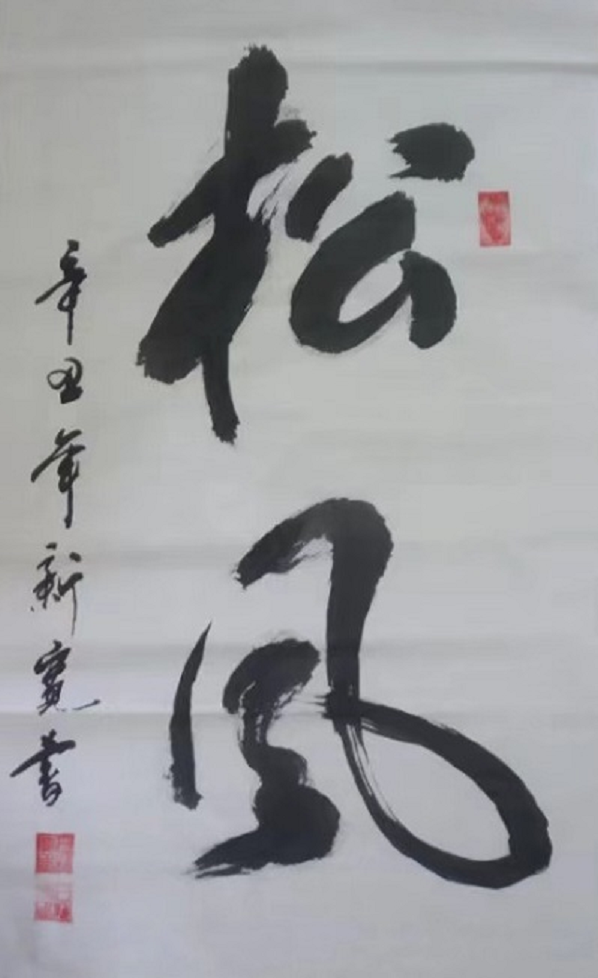 松風
辛丑年新寬書